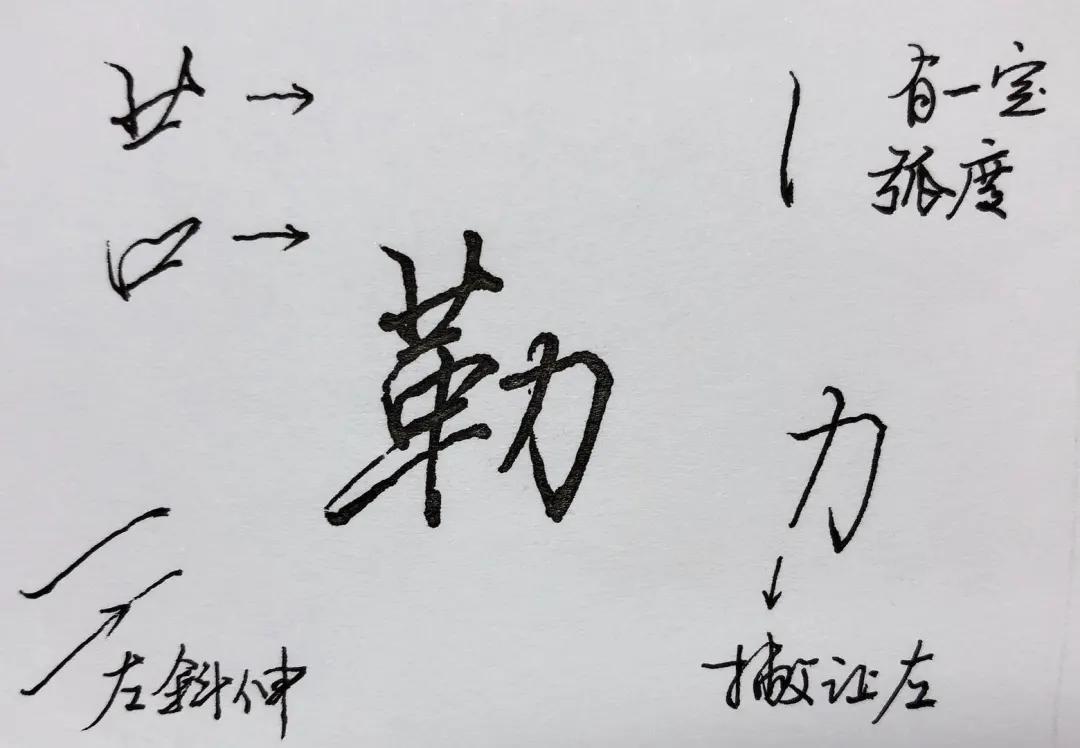 廿 →
有一定
弧度
口 →
勒
力
左斜伸
撇让左